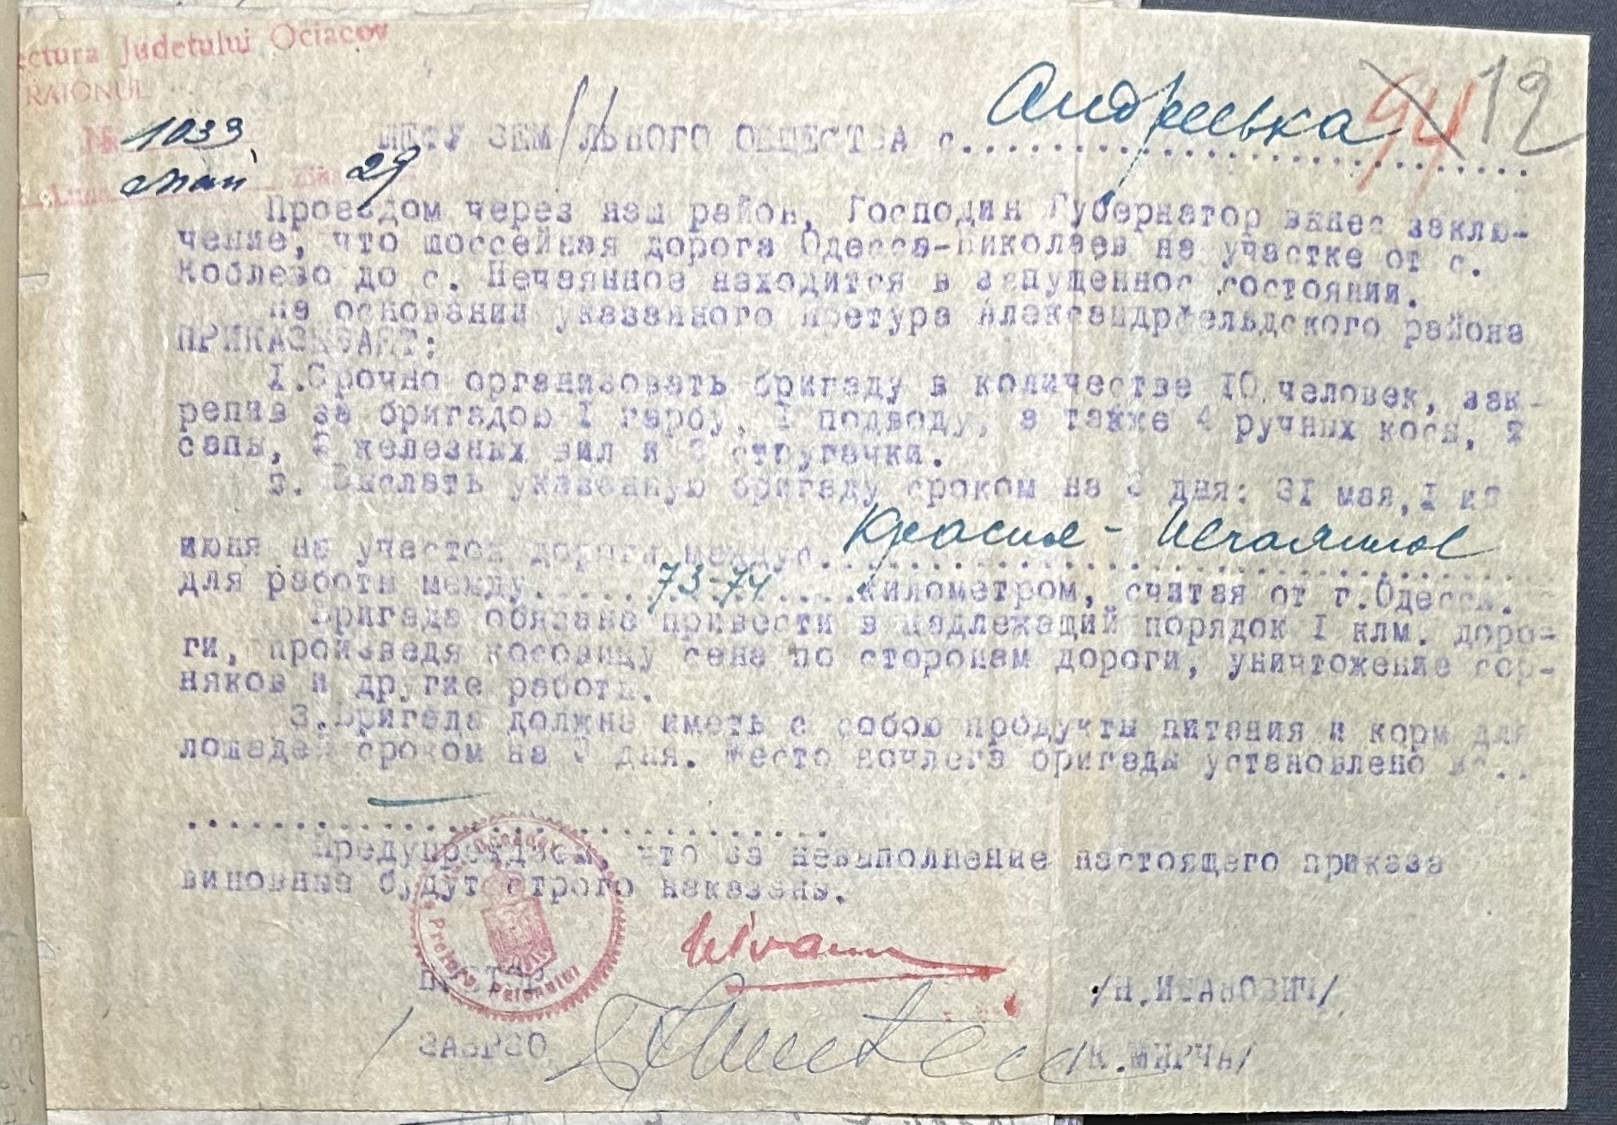 ectura Judetului Ociacov
RAIONUL
№ 1033
май 29
94 12
ШЕФУ ЗЕМЕЛЬНОГО ОБЩЕСТВА с. Андреевка
Проездом через наш район, Господин Губернатор вынес заклю-
чение, что шоссейная дорога Одесса-Николаев на участке от с.
Коблево до с. Нечаянное находится в запущенное состоянии.
На основании указанного Претура Александрфельдского района
ПРИКАЗЫВАЕТ:
I. Срочно организовать бригаду в количестве 10 человек, зак-
репив за бригадою I гарбу, I подводу, а также 4 ручных косы, 2
сапы, 2 железных вил и стругачки.
2. Выслать указанную бригаду сроком на 3 дня: 31 мая, I и 2
июня на участок дороги между Красное - Нечаянное
для работы между 73-74 километром, считая от г.Одессы.
Бригада обязана привести в надлежащий порядок I клм. доро-
ги, произведя косовицу сена по сторонам дороги, уничтожение сор-
няков и другие работы.
3. Бригада должна иметь с собою продукты питания и корм для
лошадей сроком на 3 дня. Место ночлега бригады установлено в...
Предупреждаем, что за невыполнение настоящего приказа
виновные будут строго наказаны.
Pretura Raionului
ПРЕТОР /Н.ИВАНОВИЧ/
ЗАВРЗО /К.МИРЧА/